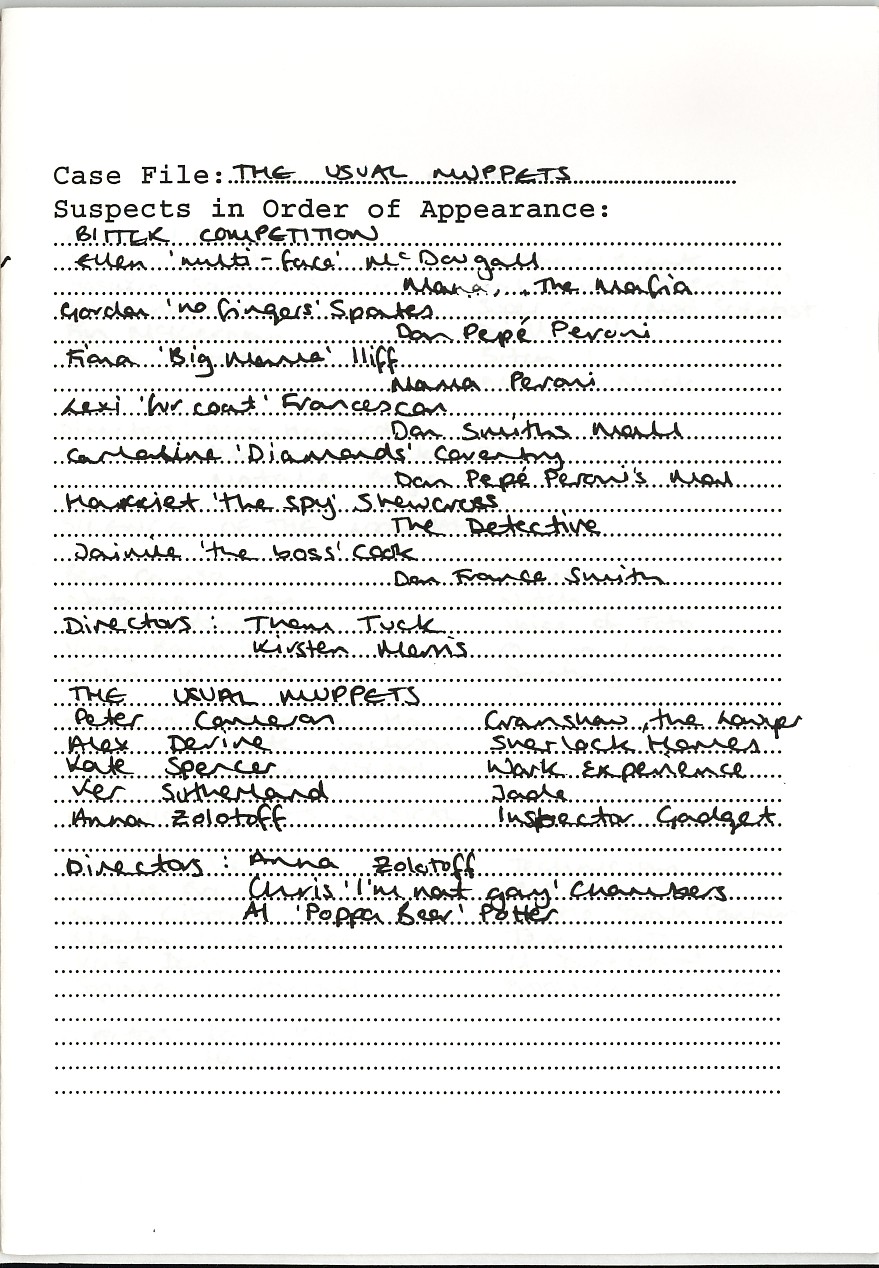 Case File: THE USUAL MUPPETS
Suspects in Order of Appearance:
BITTER COMPETITION
Ellen 'multi-face' McDougall
Mama, The Mafia
Gordon 'no fingers' Sportes
Don Pepé Peroni
Fiona 'Big Mama' Iliff
Mama Peroni
Lexi 'fur coat' Francescon
Don Smiths Moll
'Diamonds' Coventry
Don Pepé Peroni's Moll
Harriet 'the spy' Shawcross
The Detective
Jaimie 'the boss' Cook
Don France Smith
Directors : Thom Tuck
Kirsten
THE USUAL MUPPETS
Peter Cameron Cranshaw, the Lawyer
Alex Devine Sherlock Homes
Kate Spencer Work Experience
Ver Sutherland Jade
Anna Zolotoff Inspector Gadget
Directors : Anna Zolotoff
Chris 'I'm not gay' Chambers
Al 'Poppa Bear' Potter